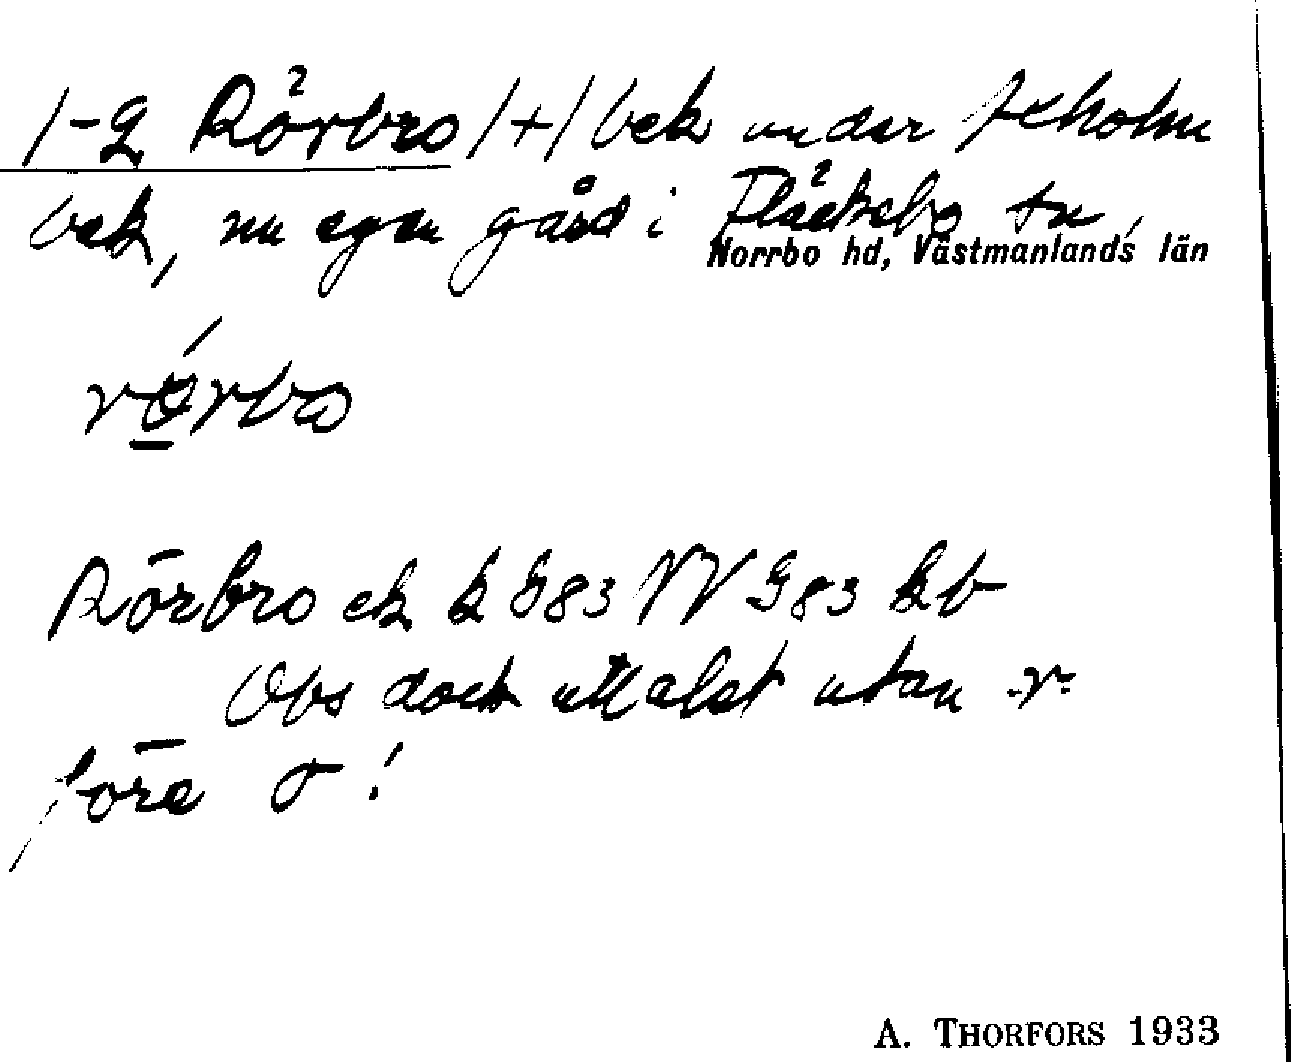 1-2 Rörbro /+/ bek under Jeholm
bek, nu egen gård i Fläckebo sn,
Norrbo hd, Västmanlands län
rörbo
Rörbro ek k G83 VV G83 kb
Obs dock uttalet utan -r-
före o!
A. THORFORS 1933